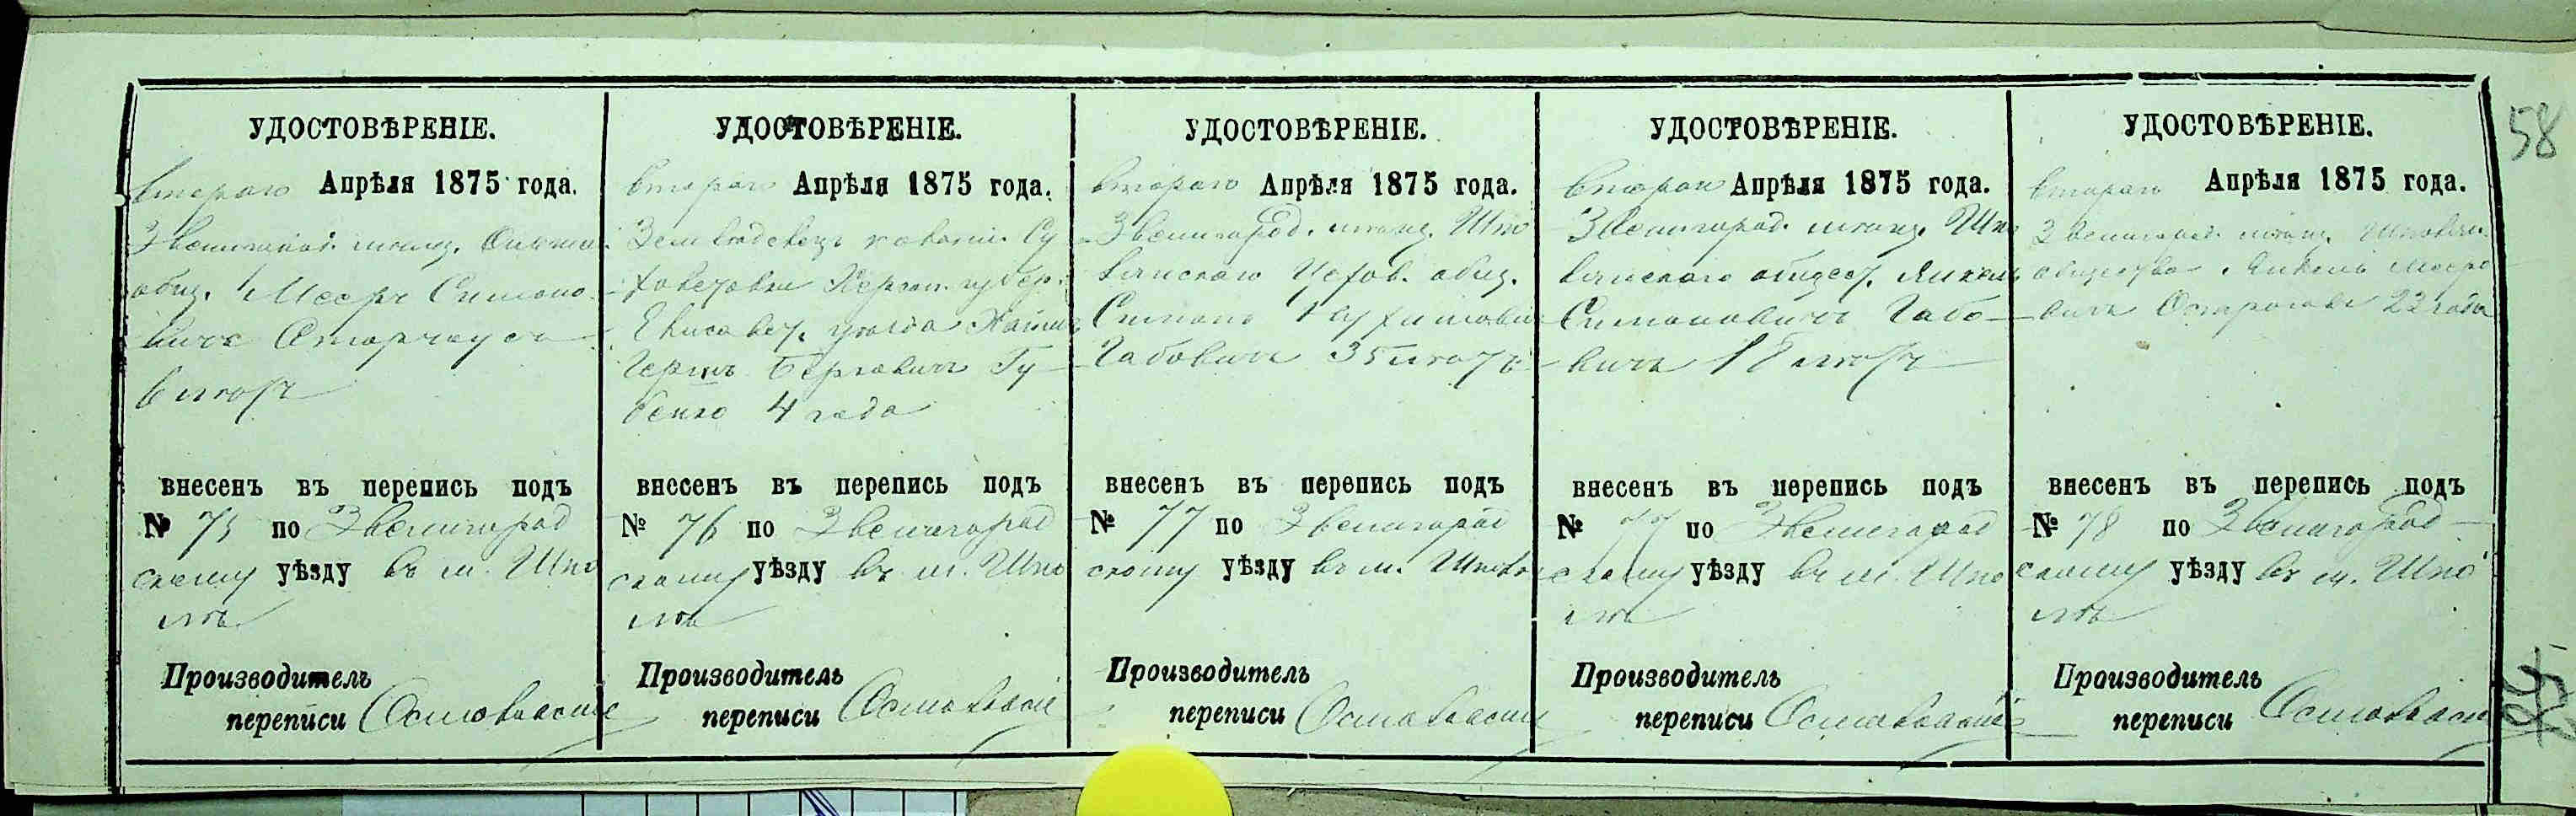 УДОСТОВѢРЕНІЕ.
Втораго Апрѣля 1875 года.
Звенигород. мѣщ.
общ. Мееръ Симоно
вичъ
6 лѣтъ
внесенъ въ перепись подъ
№ 75 по Звенигород
скому уѣзду въ м. Шпо
лѣ
Производитель
переписи
УДОСТОВѢРЕНІЕ.
Втораго Апрѣля 1875 года.
Земледѣлецъ колоніи
Херсон. губер.
Елисавет. уѣзда Хаимъ
Гершъ Берковичъ Гу
бенко 4 года
внесенъ въ перепись подъ
№ 76 по Звенигород
скому уѣзду въ м. Шпо
лѣ
Производитель
переписи
УДОСТОВѢРЕНІЕ.
Втораго Апрѣля 1875 года.
Звенигород. мѣщ. Шпо
лянскаго общ.
Симонъ
Габовичъ 35 лѣтъ
внесенъ въ перепись подъ
№ 77 по Звенигород
скому уѣзду въ м. Шполѣ
Производитель
переписи
УДОСТОВѢРЕНІЕ.
Втораго Апрѣля 1875 года.
Звенигород. мѣщ. Шпо
лянскаго общест. Янкель
Симоновичъ Габо
вичъ 18 лѣтъ
внесенъ въ перепись подъ
№ 77 по Звенигород
скому уѣзду въ м. Шпо
лѣ
Производитель
переписи
УДОСТОВѢРЕНІЕ.
Втораго Апрѣля 1875 года.
Звенигород. мѣщ. Шполян.
общества Янкель Мееро
вичъ 22 года
внесенъ въ перепись подъ
№ 78 по Звенигород
скому уѣзду въ м. Шпо
лѣ
Производитель
переписи
58